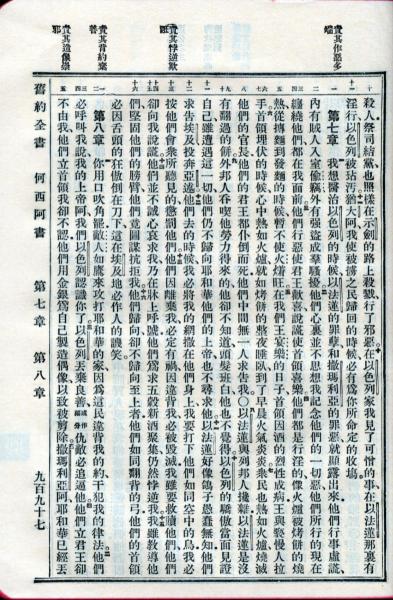 責其作惡多
端
責其悖逆欺
誑
責其背約棄
善
責其造像崇
邪
殺人祭司結黨也照樣在示劍的路上殺戮行了邪惡在以色列家我見了可憎的事在以法蓮那裏有
淫行以色列被玷污猶大阿我使被擄之民歸回的時候必有爲你所命定的收場
第七章 我想醫治以色列的時候以法蓮的罪孽和撒瑪利亞的罪惡就顯露出來他們行事虛謊
內有賊人入室偷竊外有强盜成羣騷擾他們心裏並不思想我記念他們的一切惡他們所行的現在
纏繞他們都在我面前他們行惡使君王歡喜說謊使首領喜樂他們都是行淫的像火爐被烤餅的燒
熱從摶麵到發麵的時候暫不使火旺在我們王宴樂的日子首領因酒的烈性成病王與褻慢人拉
手首領埋伏的時候心中熱如火爐就如烤餅的整夜睡臥到了早晨火氣炎炎衆民也熱如火爐燒滅
他們的官長他們的君王都仆倒而死他們中間無一人求告我〇以法蓮與列邦人攙雜以法蓮是沒
有翻過的餅外邦人吞喫他勞力得來的他卻不知道頭髮斑白他也不覺得以色列的驕傲當面見證
自己雖遭遇這一切他們仍不歸向耶和華他們的上帝也不尋求他以法蓮好像鴿子愚蠢無知他們
求告埃及投奔亞述他們去的時候我必將我的網撒在他們身上我要打下他們如同空中的鳥我必
按他們會衆所聽見的懲罰他們他們因離我必定有禍因違背我必被毀滅我雖要救贖他們他們
卻向我說謊他們並不誠心哀求我乃在牀上呼號他們爲求五穀新酒聚集仍然悖逆我我雖教導他
們堅固他們的膀臂他們竟圖謀抗拒我他們歸向卻不歸向至上者他們如同翻背的弓他們的首領
必因舌頭的狂傲倒在刀下這在埃及地必作人的譏笑
第八章 你用口吹角罷敵人如鷹來攻打耶和華的家因爲這民違背我的約干犯我的律法他們
必呼叫我說我的上帝阿我們以色列認識你了以色列丟棄良善或作福分仇敵必追逼他他們立君王卻
不由我他們立首領我卻不認他們用金銀爲自己製造偶像以致被剪除撒瑪利亞阿耶和華已經丟
舊約全書 何西阿書 第七章 第八章 九百九十七